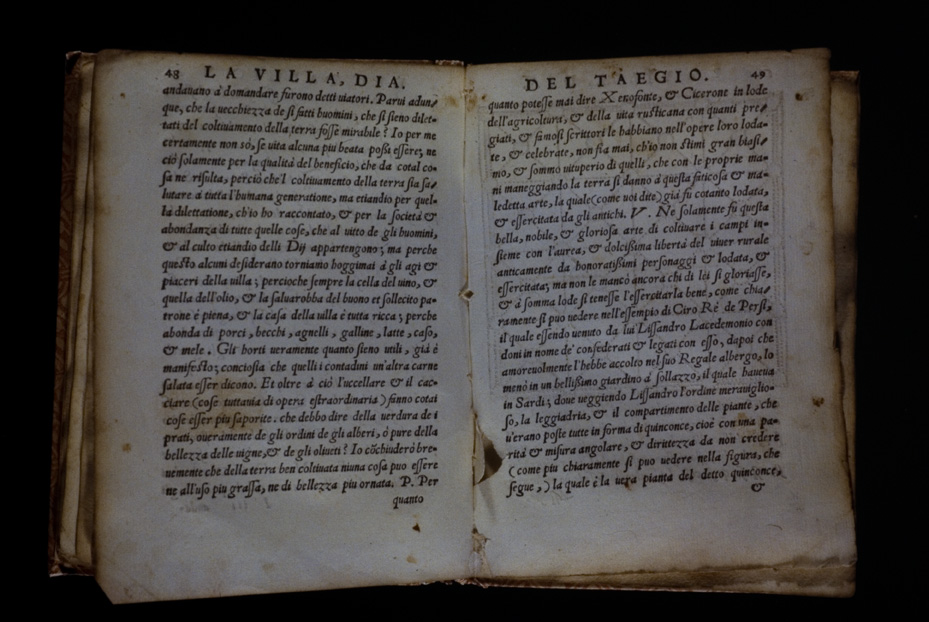 48 LA VILLA, DIA.
andauano à domandare furono detti uiatori. Parui adun-
que, che la uecchiezza de si fatti huomini, che si sieno dilet-
tati del coltiuamento della terra fosse mirabile? Io per me
certamente non sò, se uita alcuna piu beata possa essere; ne
ciò solamente per la qualità del beneficio, che da cotal co-
sa ne risulta, perciò che'l coltiuamento della terra sia sa-
lutare à tutta l'humana generatione, ma etiandio per quel-
la dilettatione, ch'io ho raccontato, & per la società &
abondanza di tutte quelle cose, che al uitto de gli huomini,
& al culto etiandio delli Dij appartengono; ma perche
questo alcuni desiderano torniamo hoggimai à gli agi &
piaceri della uilla; percioche sempre la cella del uino, &
quella dell'olio, & la saluarobba del buono et sollecito pa-
trone è piena, & la casa della uilla è tutta ricca; perche
abonda di porci, becchi, agnelli, galline, latte, caso,
& mele. Gli horti ueramente quanto sieno utili, già è
manifesto; conciosia che quelli i contadini un'altra carne
salata esser dicono. Et oltre à ciò l'uccellare & il cac-
ciare (cose tuttauia di opera estraordinaria) fanno cotai
cose esser piu saporite. che debbo dire della uerdura de i
prati, oueramente de gli ordini de gli alberi, ò pure della
bellezza delle uigne, & de gli oliueti? Io cõchiuderò bre-
uemente che della terra ben coltiuata niuna cosa puo essere
ne all'uso piu grassa, ne di bellezza piu ornata. P. Per
quanto
DEL TAEGIO. 49
quanto potesse mai dire Xenofonte, & Cicerone in lode
dell'agricoltura, & della uita rusticana con quanti pre-
giati, & famosi scrittori le habbiano nell'opere loro loda-
te, & celebrate, non fia mai, ch'io non stimi gran biasi-
mo, & sommo uituperio di quelli, che con le proprie ma-
ni maneggiando la terra si danno à questa faticosa & ma-
ledetta arte, la quale (come uoi dite) già fù cotanto lodata,
& essercitata da gli antichi. V. Ne solamente fù questa
bella, nobile, & gloriosa arte di coltiuare i campi in-
sieme con l'aurea, & dolcissima libertà del uiuer rurale
anticamente da honoratissimi personaggi & lodata, &
essercitata; ma non le mancò ancora chi di lei si gloriasse,
& à somma lode si tenesse l'essercitarla bene, come chia-
ramente si puo uedere nell'essempio di Ciro Rè de Persi,
il quale essendo uenuto da lui Lissandro Lacedemonio con
doni in nome de' confederati & legati con esso, dapoi che
amoreuolmente l'hebbe accolto nel suo Regale albergo, lo
menò in un bellissimo giardino à sollazzo, il quale haueua
in Sardi; doue ueggiendo Lissandro l'ordine merauiglio-
so, la leggiadria, & il compartimento delle piante, che
u'erano poste tutte in forma di quinconce, cioè con una pa-
rità & misura angolare, & dirittezza da non credere
(come piu chiaramente si puo uedere nella figura, che
segue,) la quale è la uera pianta del detto quinconce,
&